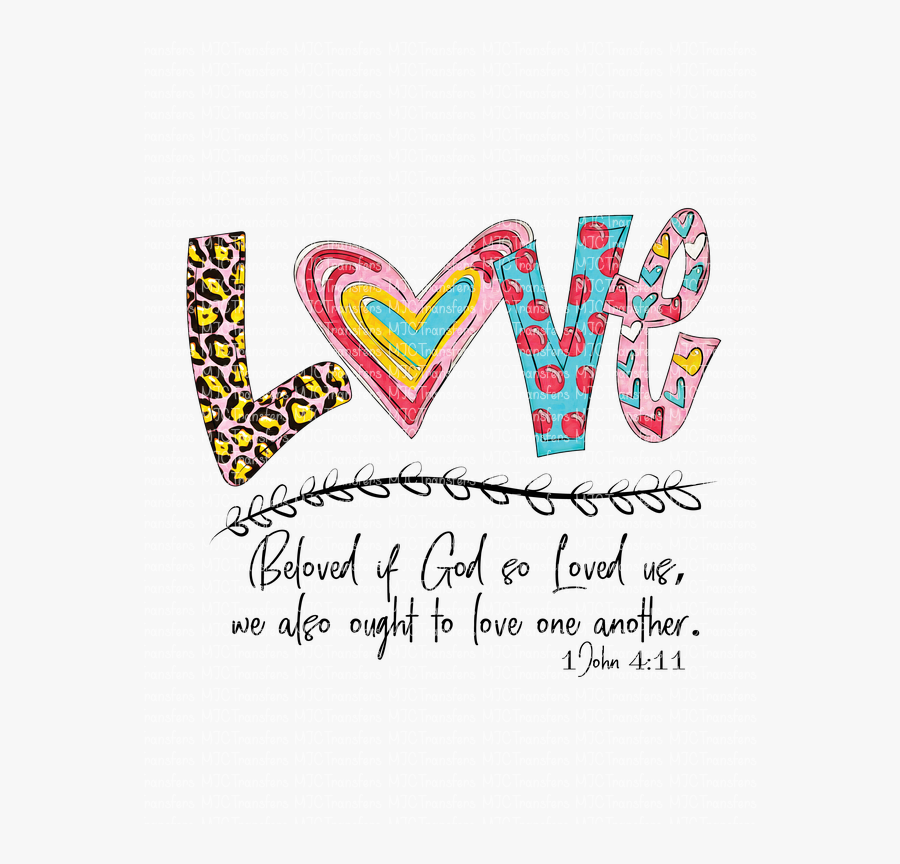 LOVE
Beloved if God so Loved us,
we also ought to love one another.
1 John 4:11
MJC Transfers